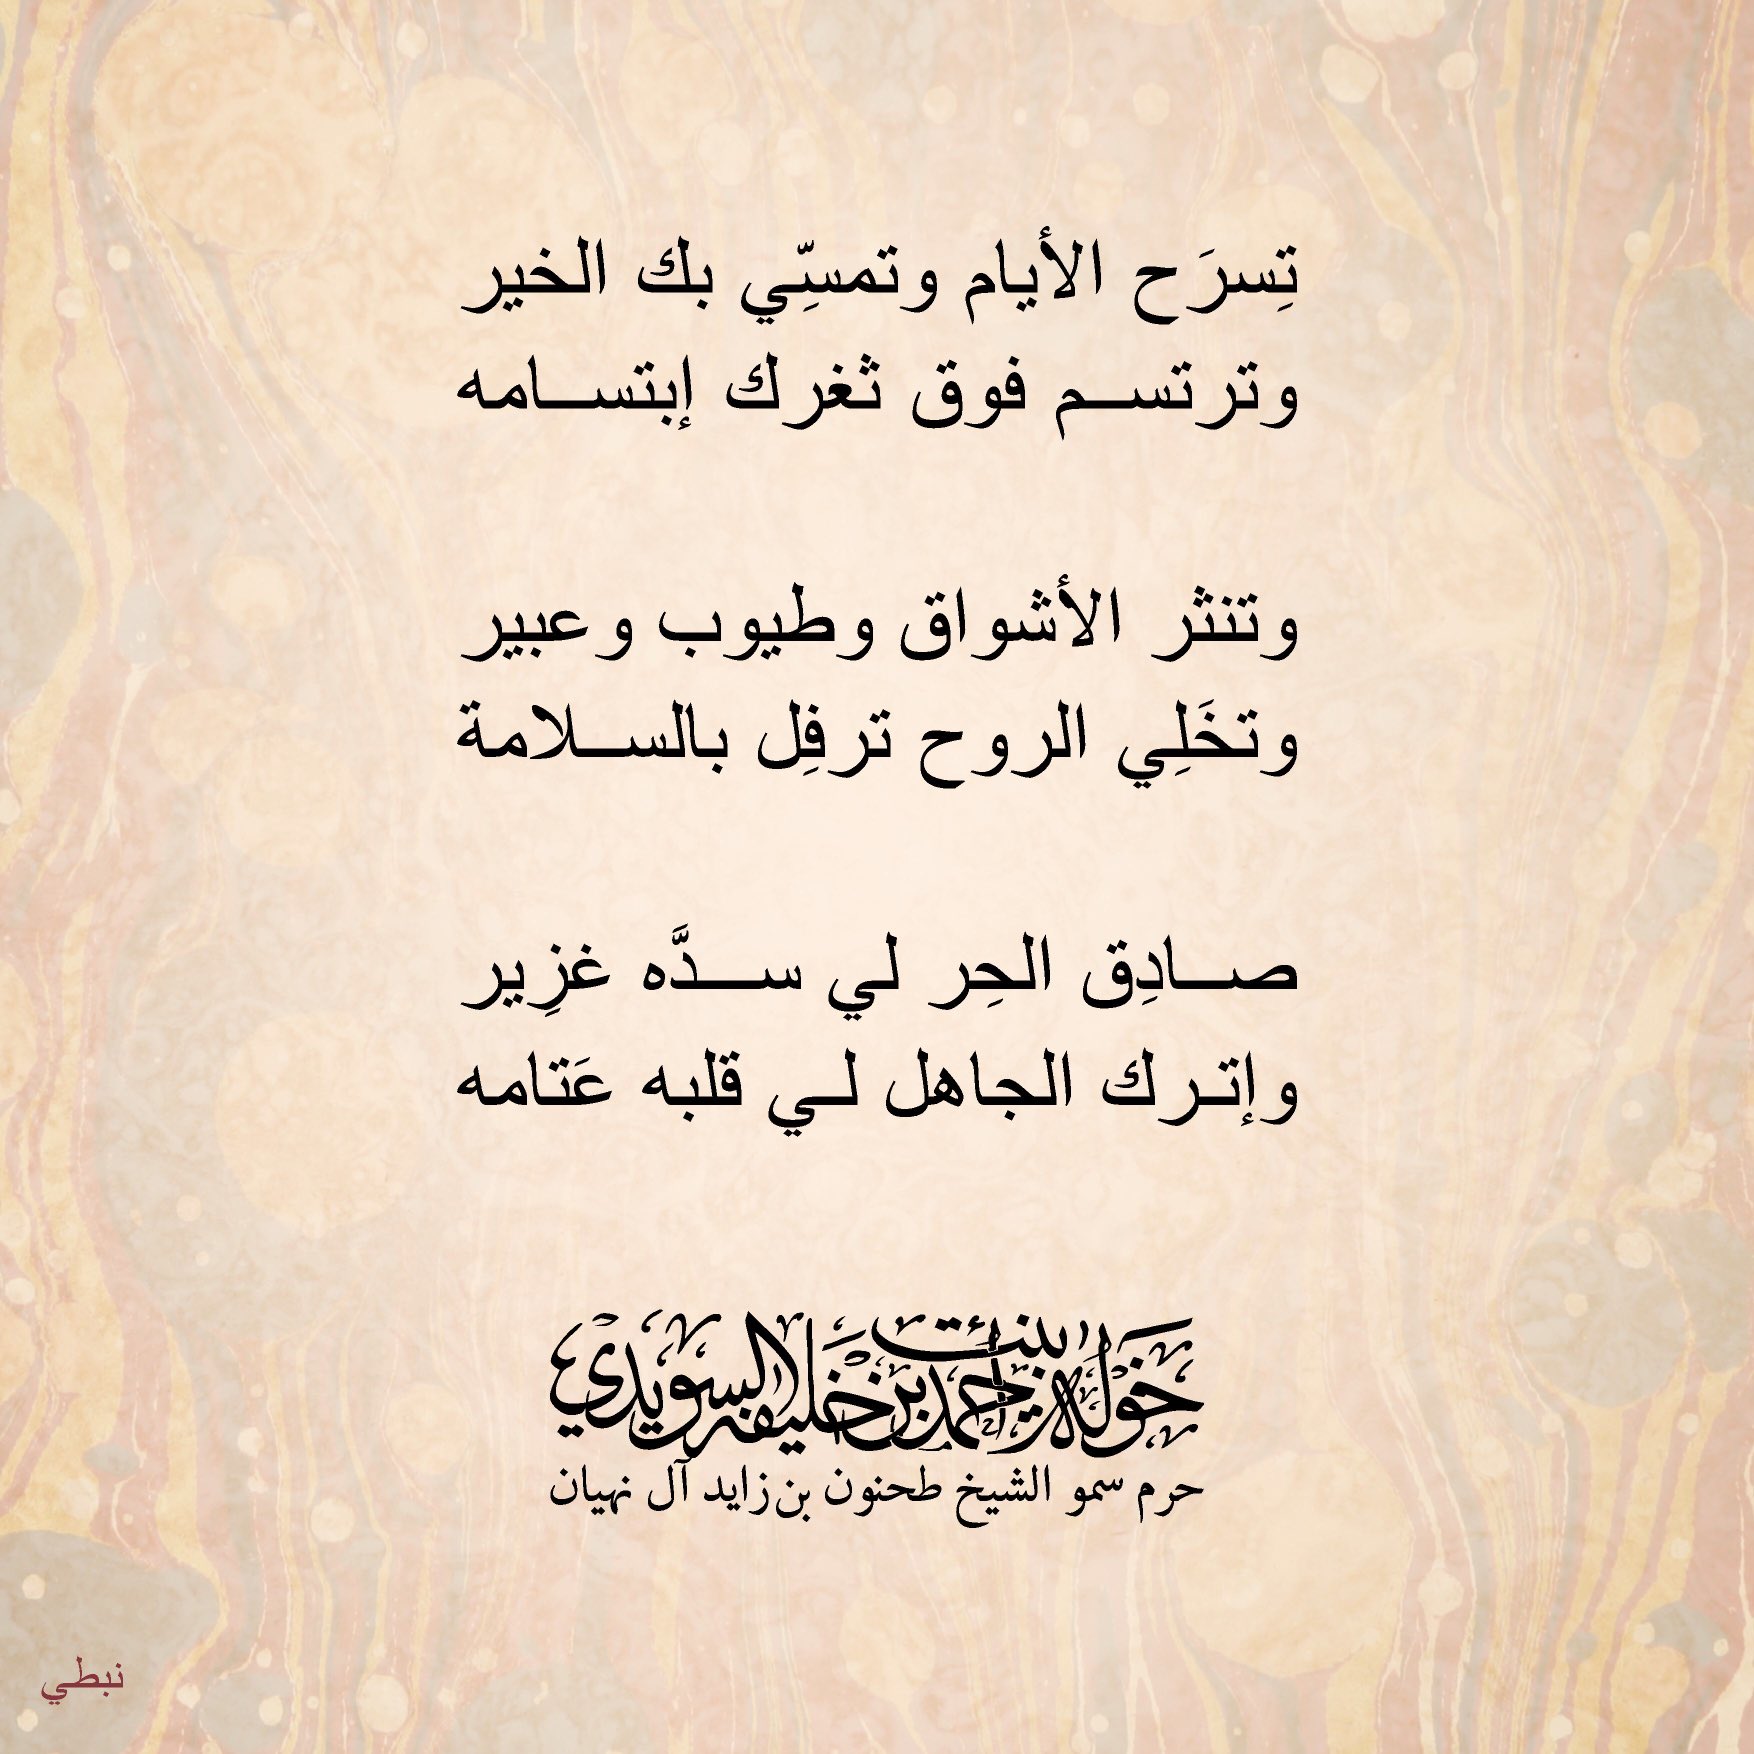 تِسرَح الأيام وتمسِّي بك الخير
وترتســم فوق ثغرك إبتســامه
وتنثر الأشواق وطيوب وعبير
وتخَلِي الروح ترفِل بالســلامة
صــادِق الحِر لي ســدَّه غزِير
وإتـرك الجاهل لـي قلبه عَتامه
خولة بنت أحمد بن خليفة السويدي
حرم سمو الشيخ طحنون بن زايد آل نهيان
نبطي